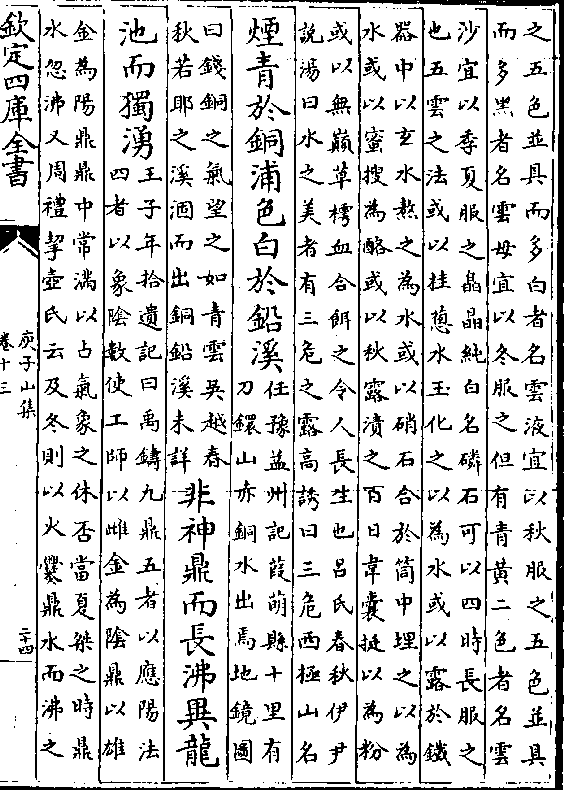 之五色並具而多白者名雲液宜以秋服之五色並具
而多黑者名雲母宜以冬服之但有青黃二色者名雲
沙宜以季夏服之晶晶純白名磷石可以四時長服之
也五雲之法或以桂葱水玉化之以為水或以露於鐵
器中以玄水熬之為水或以硝石合於筒中埋之以為
水或以蜜搜為酪或以秋露漬之百日韋囊挻以為粉
或以無巔草樗血合餌之令人長生也吕氏春秋伊尹
說湯曰水之美者有三危之露高誘曰三危西極山名
煙青於銅浦色白於鉛溪
任豫益州記葭萌縣十里有
刀鐶山赤銅水出焉地鏡圖
曰錢銅之氣望之如青雲吳越春
秋若耶之溪涸而出銅鉛溪未詳
非神鼎而長沸異龍
池而獨湧
王子年拾遺記曰禹鑄九鼎五者以應陽法
四者以象陰數使工師以雌金為陰鼎以雄
金為陽鼎鼎中常滿以占氣象之休否當夏桀之時鼎
水忽沸又周禮挈壺氏云及冬則以火爨鼎水而沸之
欽定四庫全書
庾子山集
卷十三
二十四